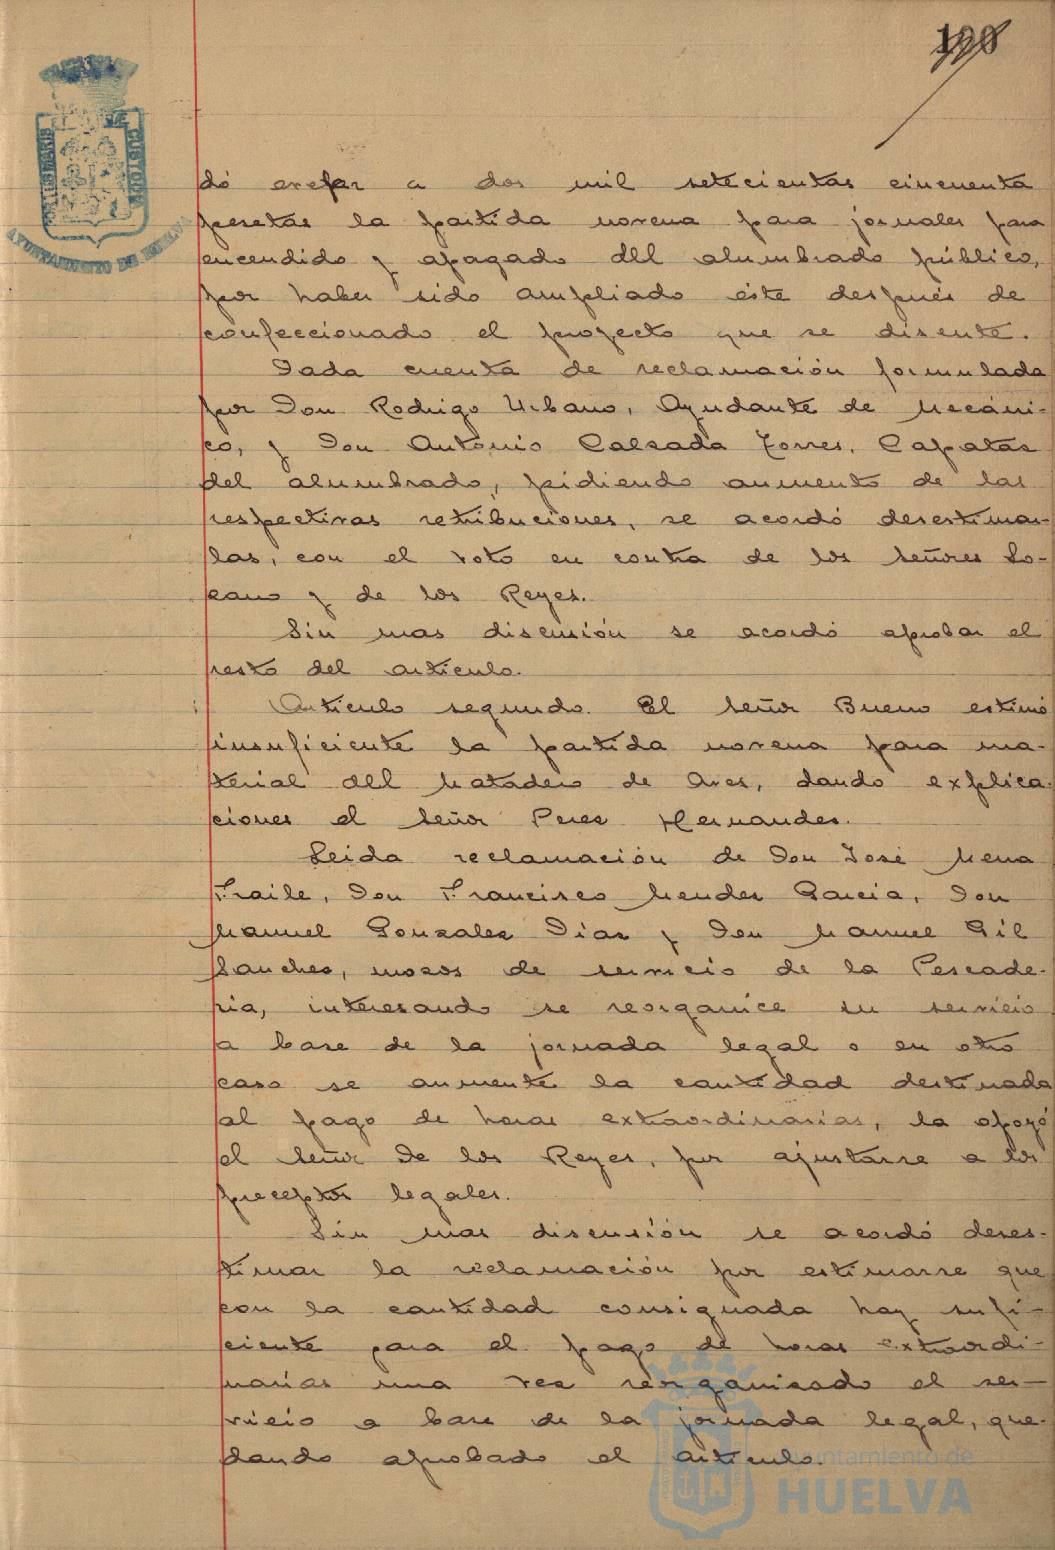 190
PORTUS MARIS
CUSTODIA
AYUNTAMIENTO DE HUELVA
dó a dos mil setecientas cincuenta
pesetas la partida novena para jornales para
encendido y apagado del alumbrado público,
por haber sido ampliado éste después de
confeccionado el proyecto que se discute.
Dada cuenta de reclamación formulada
por Don Rodrigo Urbano, Ayudante de Mecáni-
co, y Don Antonio Calzada Torres, Capataz
del alumbrado, pidiendo aumento de las
respectivas retribuciones, se acordó desestimar-
las, con el voto en contra de los Señores Lo-
zano y de los Reyes.
Sin mas discusión se acordó aprobar el
resto del artículo.
Artículo segundo. El Señor Bueno estimó
insuficiente la partida novena para ma-
terial del Matadero de Aves, dando explica-
ciones el Señor Perez Hernandez.
Leida reclamación de Don José Mena
Fraile, Don Francisco Mendez Garcia, Don
Manuel Gonzalez Diaz y Don Manuel Gil
Sanchez, mozos de servicio de la Pescade-
ria, interesando se reorganice su servicio
a base de la jornada legal o en otro
caso se aumente la cantidad destinada
al pago de horas extraordinarias, la apoyó
el Señor De los Reyes, por ajustarse a los
preceptos legales.
Sin mas discusión se acordó deses-
timar la reclamación por estimarse que
con la cantidad consignada hay sufi-
ciente para el pago de horas extraordi-
narias una vez reorganizado el ser-
vicio a base de la jornada legal, que-
dando aprobado el artículo.
Ayuntamiento de
HUELVA